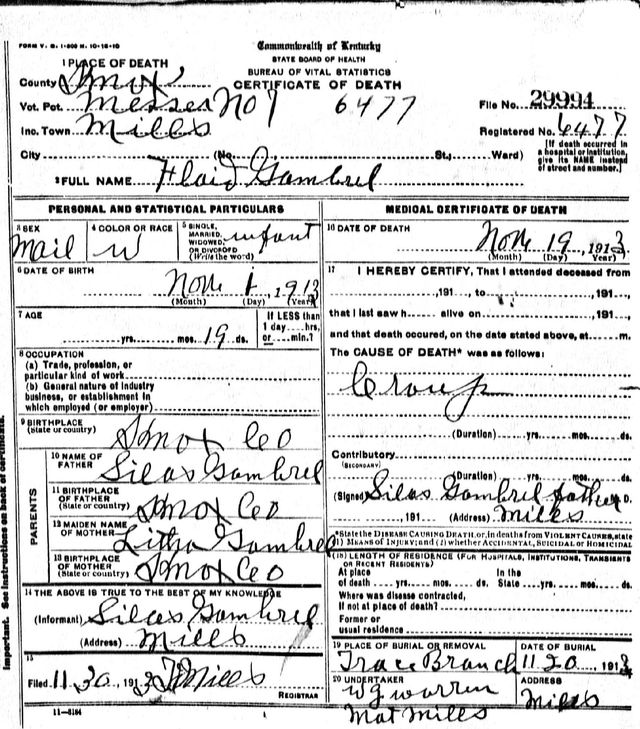 FORM V. S. 1-500 M. 10-18-10
Commonwealth of Kentucky
STATE BOARD OF HEALTH
BUREAU OF VITAL STATISTICS
CERTIFICATE OF DEATH
1 PLACE OF DEATH
County Knox
Vot. Pct. Messer No 7 6477
Inc. Town Mills
City (No. St.; Ward)
File No. 29994
Registered No. 6477
[If death occurred in
a hospital or institution,
give its NAME instead
of street and number.]
2 FULL NAME Floid Gambrel
PERSONAL AND STATISTICAL PARTICULARS
3 SEX
mail
4 COLOR OR RACE
w
5 SINGLE,
MARRIED,
WIDOWED,
OR DIVORCED
(Write the word)
infant
6 DATE OF BIRTH
Nom 1, 1913
(Month) (Day) (Year)
7 AGE
yrs. mos. 19 ds.
If LESS than
1 day hrs.
or min.?
8 OCCUPATION
(a) Trade, profession, or
particular kind of work
(b) General nature of industry
business, or establishment in
which employed (or employer)
9 BIRTHPLACE
(State or country)
Knox Co
PARENTS
10 NAME OF
FATHER
Silas Gambrel
11 BIRTHPLACE
OF FATHER
(State or country)
Knox Co
12 MAIDEN NAME
OF MOTHER
Litha Gambrel
13 BIRTHPLACE
OF MOTHER
(State or country)
Knox Co
14 THE ABOVE IS TRUE TO THE BEST OF MY KNOWLEDGE
(Informant) Silas Gambrel
(Address) Mills
15
Filed 11 20, 1913 Mills
REGISTRAR
11-5184
MEDICAL CERTIFICATE OF DEATH
16 DATE OF DEATH
Nom 19, 1913
(Month) (Day) (Year)
17 I HEREBY CERTIFY, That I attended deceased from
, 191 , to , 191 ,
that I last saw h alive on , 191 ,
and that death occured, on the date stated above, at m.
The CAUSE OF DEATH* was as follows:
Croup
(Duration) yrs. mos. ds.
Contributory
(SECONDARY)
(Duration) yrs. mos. ds.
(Signed) Silas Gambrel father M. D.
, 191 (Address) Mills
*State the DISEASE CAUSING DEATH, or, in deaths from VIOLENT CAUSES, state
(1) MEANS OF INJURY; and (2) whether ACCIDENTAL, SUICIDAL or HOMICIDAL
(18) LENGTH OF RESIDENCE (FOR HOSPITALS, INSTITUTIONS, TRANSIENTS
OR RECENT RESIDENTS)
At place In the
of death yrs. mos. ds. State yrs. mos. ds.
Where was disease contracted,
If not at place of death?
Former or
usual residence
19 PLACE OF BURIAL OR REMOVAL
Trace Branch
DATE OF BURIAL
11 20, 1913
20 UNDERTAKER
W G Warren
Mat Mills
ADDRESS
Mills
Important. See instructions on back of certificate.